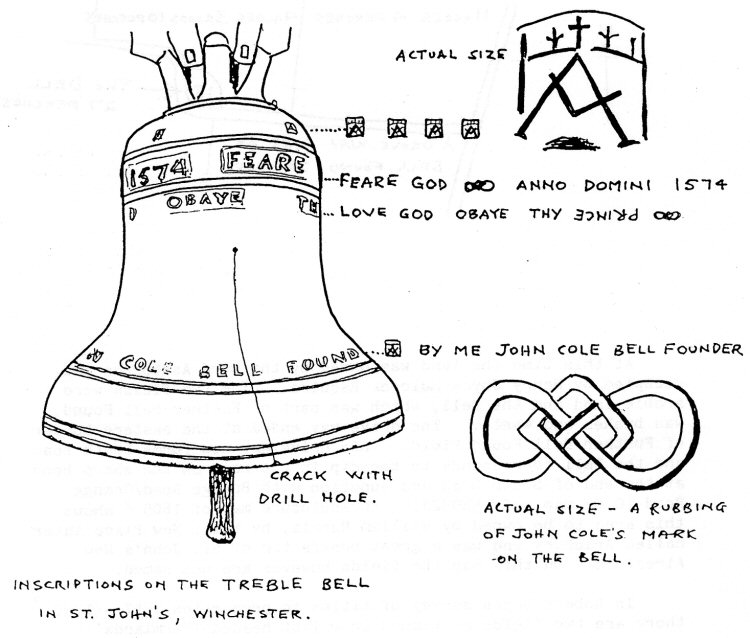 ACTUAL SIZE
1574 FEARE
FEARE GOD ANNO DOMINI 1574
OBAYE TH
LOVE GOD OBAYE THY PRINCE
COLE BELL FOUND
BY ME JOHN COLE BELL FOUNDER
CRACK WITH
DRILL HOLE.
ACTUAL SIZE – A RUBBING
OF JOHN COLE'S MARK
-ON THE BELL.
INSCRIPTIONS ON THE TREBLE BELL
IN ST. JOHN'S, WINCHESTER.